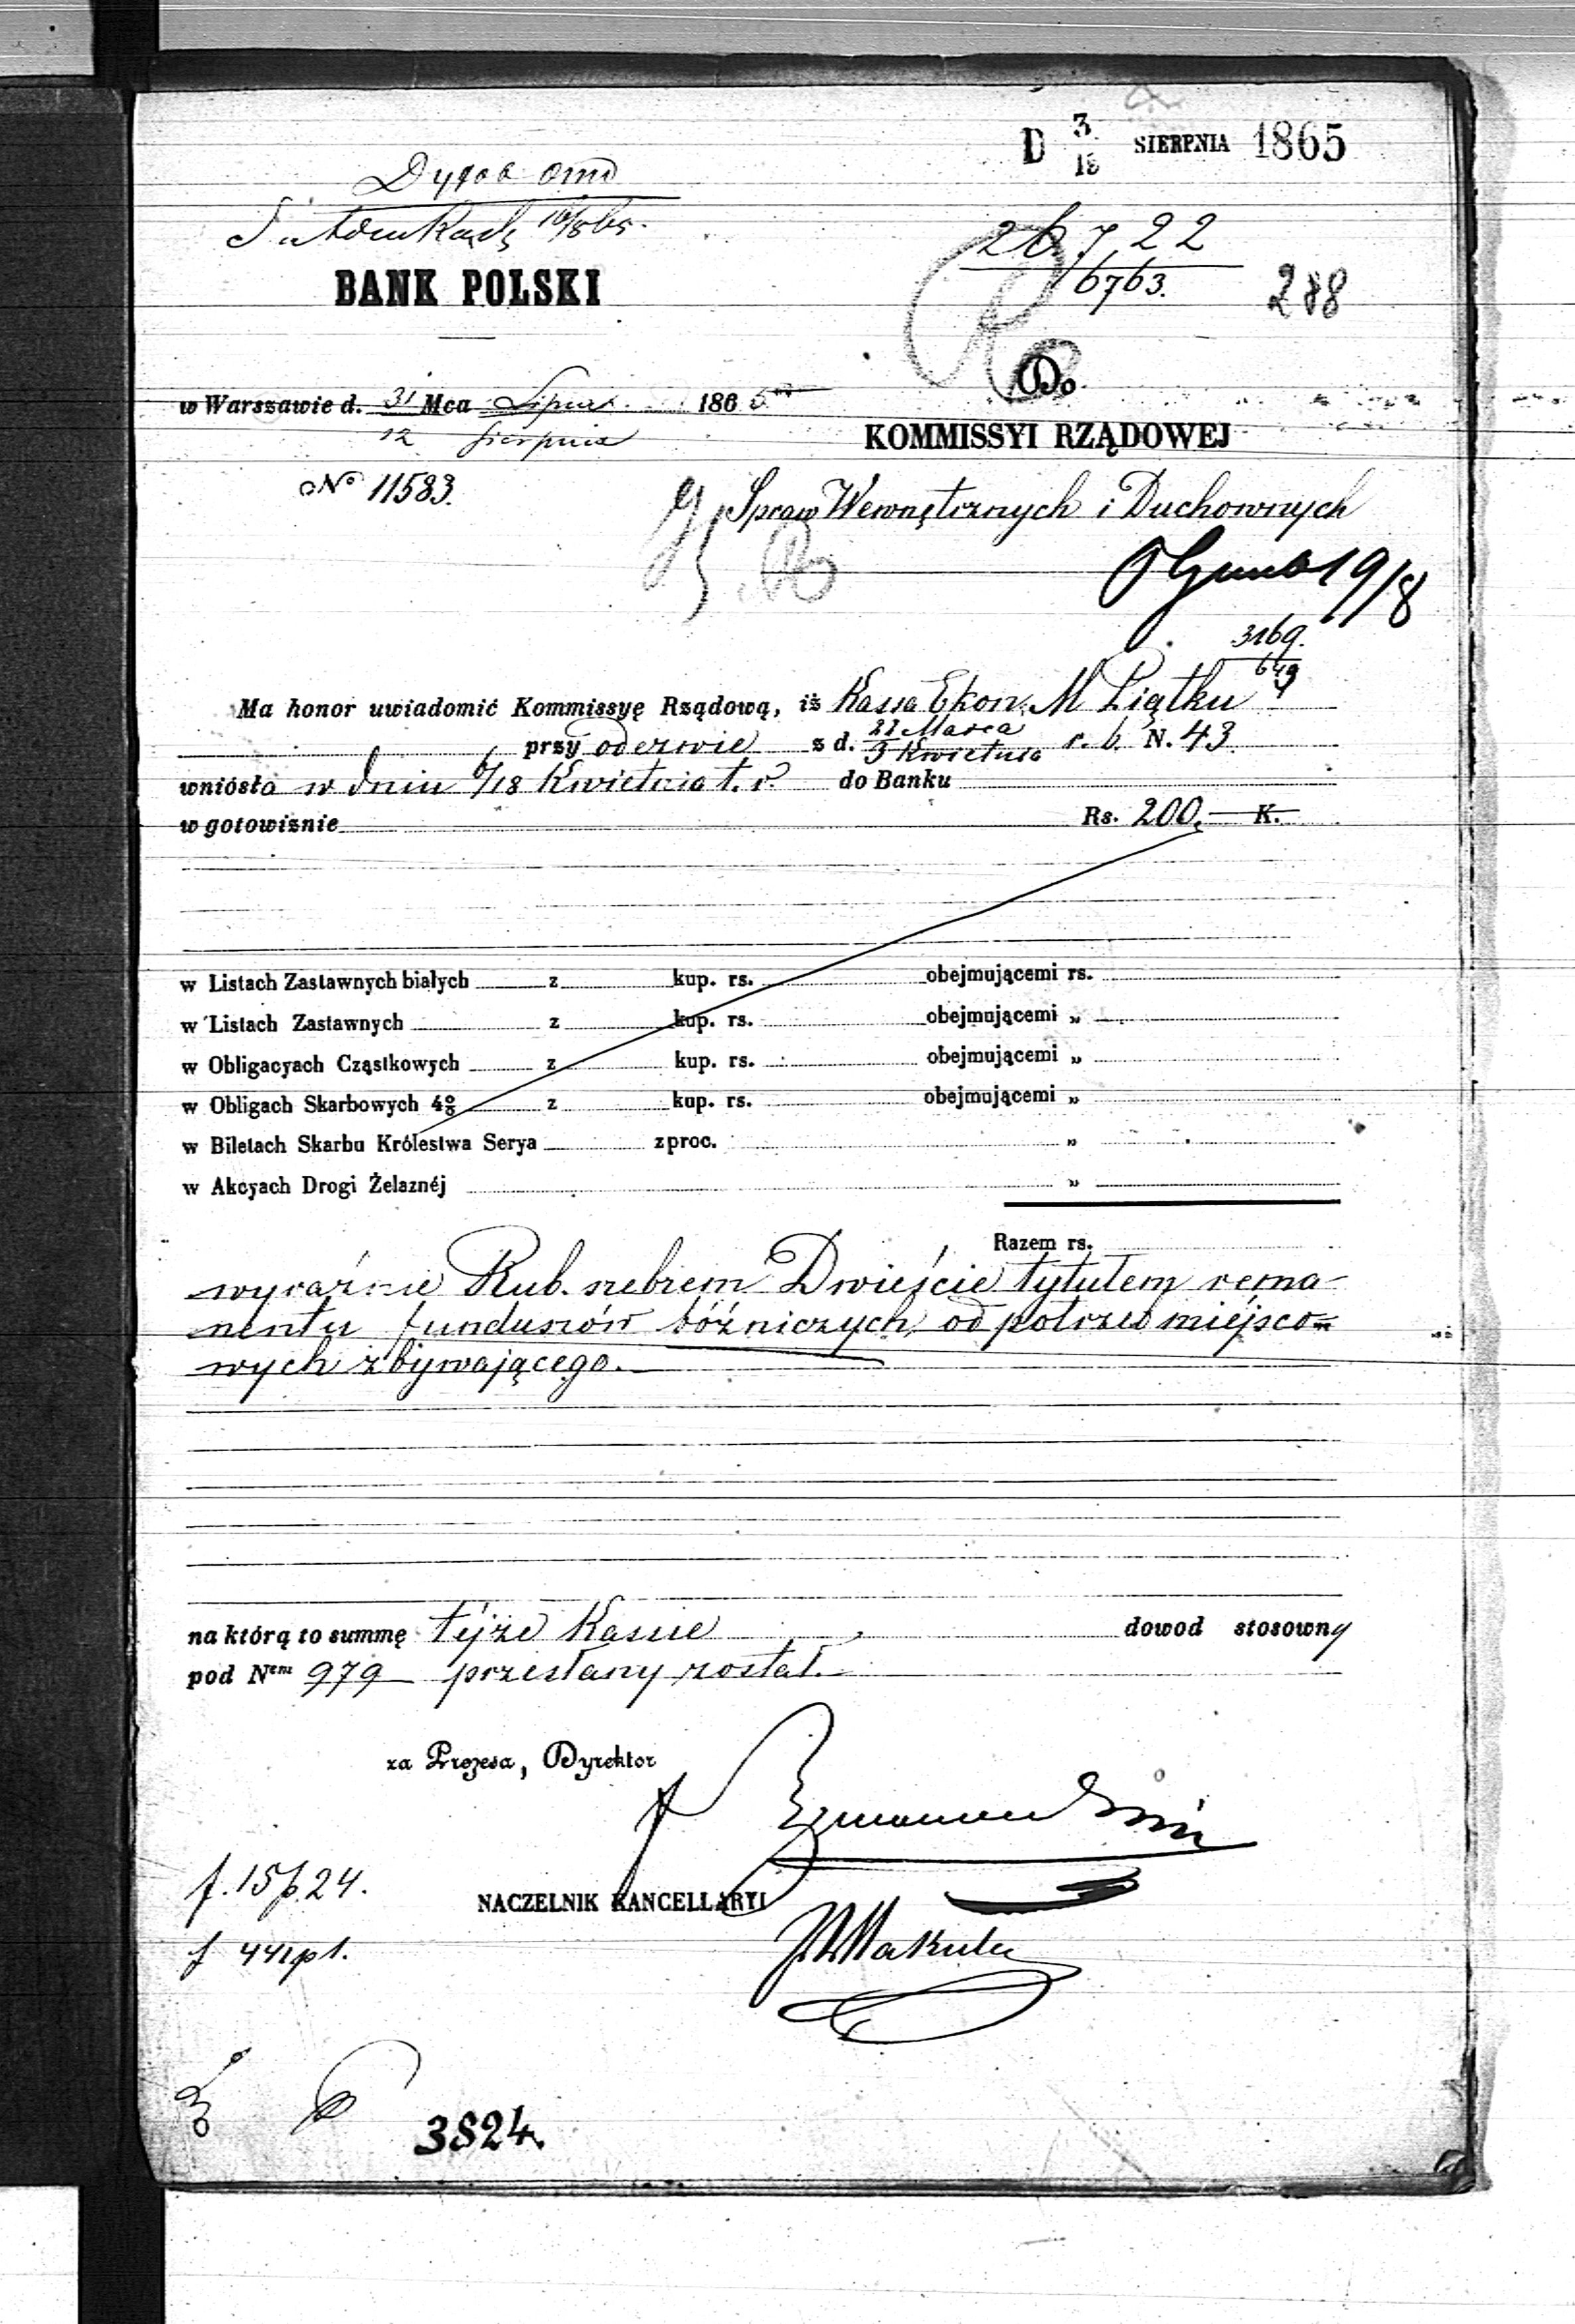 D 3/15 SIERPNIA 1865
26722
6763.
288
BANK POLSKI
w Warszawie d. 31 Mca Lipca 1865
12 Sierpnia
No 11583.
Do
KOMMISSYI RZĄDOWEJ
Spraw Wewnętrznych i Duchownych
19/8
3169.
649
Ma honor uwiadomić Kommissyę Rządową, iż Kassa Ekon. M Piątku
przy odezwie z d. 22 Marca / 3 Kwietnia r. b. N. 43
wniósła w dniu 6/18 Kwietnia t. r. do Banku
w gotowiznie Rs. 200. — K.
w Listach Zastawnych białych z kup. rs. obejmującemi rs.
w Listach Zastawnych z kup. rs. obejmującemi „
w Obligacyach Cząstkowych z kup. rs. obejmującemi „
w Obligach Skarbowych 4% z kup. rs. obejmującemi „
w Biletach Skarbu Królestwa Serya z proc. „
w Akcyach Drogi Żelaznéj „
Razem rs.
wyraźnie Rub. srebrem Dwieście tytułem rema-
nentu funduszów bóźniczych, od potrzeb miejsco=
wych zbywającego.
na którą to summę téjże Kassie dowod stosowny
pod Nem 979 przesłany został.
za Prezesa, Dyrektor
f. 15 p. 24.
NACZELNIK KANCELLARYI
Makulec
f 441 p 1.
3824.